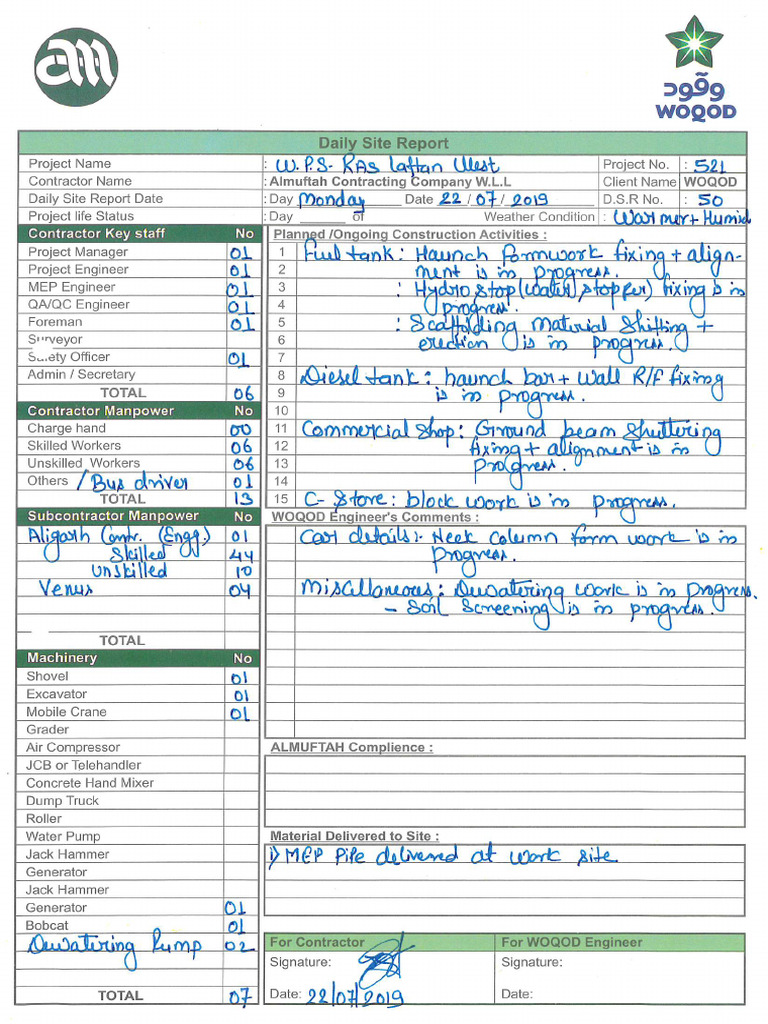 am
وقود
WOQOD
Daily Site Report
Project Name : W.P.S- RAS laffan West Project No. : 521
Contractor Name : Almuftah Contracting Company W.L.L Client Name WOQOD
Daily Site Report Date : Day Monday Date 22 / 07 / 2019 D.S.R No. : 50
Project life Status : Day of Weather Condition : Warmer + Humid
Contractor Key staff No
Project Manager 01
Project Engineer 01
MEP Engineer 01
QA/QC Engineer 01
Foreman 01
Surveyor
Safety Officer 01
Admin / Secretary
TOTAL 06
Contractor Manpower No
Charge hand 00
Skilled Workers 06
Unskilled Workers 06
Others / Bus driver 01
TOTAL 13
Subcontractor Manpower No
Aligarh Contr. (Engg.) 01
Skilled 44
Unskilled 10
Venus 04
TOTAL
Machinery No
Shovel 01
Excavator 01
Mobile Crane 01
Grader
Air Compressor
JCB or Telehandler
Concrete Hand Mixer
Dump Truck
Roller
Water Pump
Jack Hammer
Generator
Jack Hammer
Generator 01
Bobcat 01
Dewatering Pump 02
TOTAL 07
Planned /Ongoing Construction Activities :
1 Fuel tank : Haunch formwork fixing + align-
2 ment is in progress.
3 : Hydro stop (water stopper) fixing is in
4 progress.
5 : Scaffolding Material Shifting +
6 erection is in progress.
7
8 Diesel tank : haunch bar + wall R/F fixing
9 is in progress.
10
11 Commercial Shop : Ground beam shuttering
12 fixing + alignment is in
13 progress.
14
15 C- Store : block work is in progress.
WOQOD Engineer's Comments :
Car details :- Neck column form work is in
progress.
Miscallaneous : Dewatering work is in progress.
- Soil Screening is in progress.
ALMUFTAH Complience :
Material Delivered to Site :
i) MEP Pipe delivered at work site
For Contractor For WOQOD Engineer
Signature: Signature:
Date: 22/07/2019 Date: